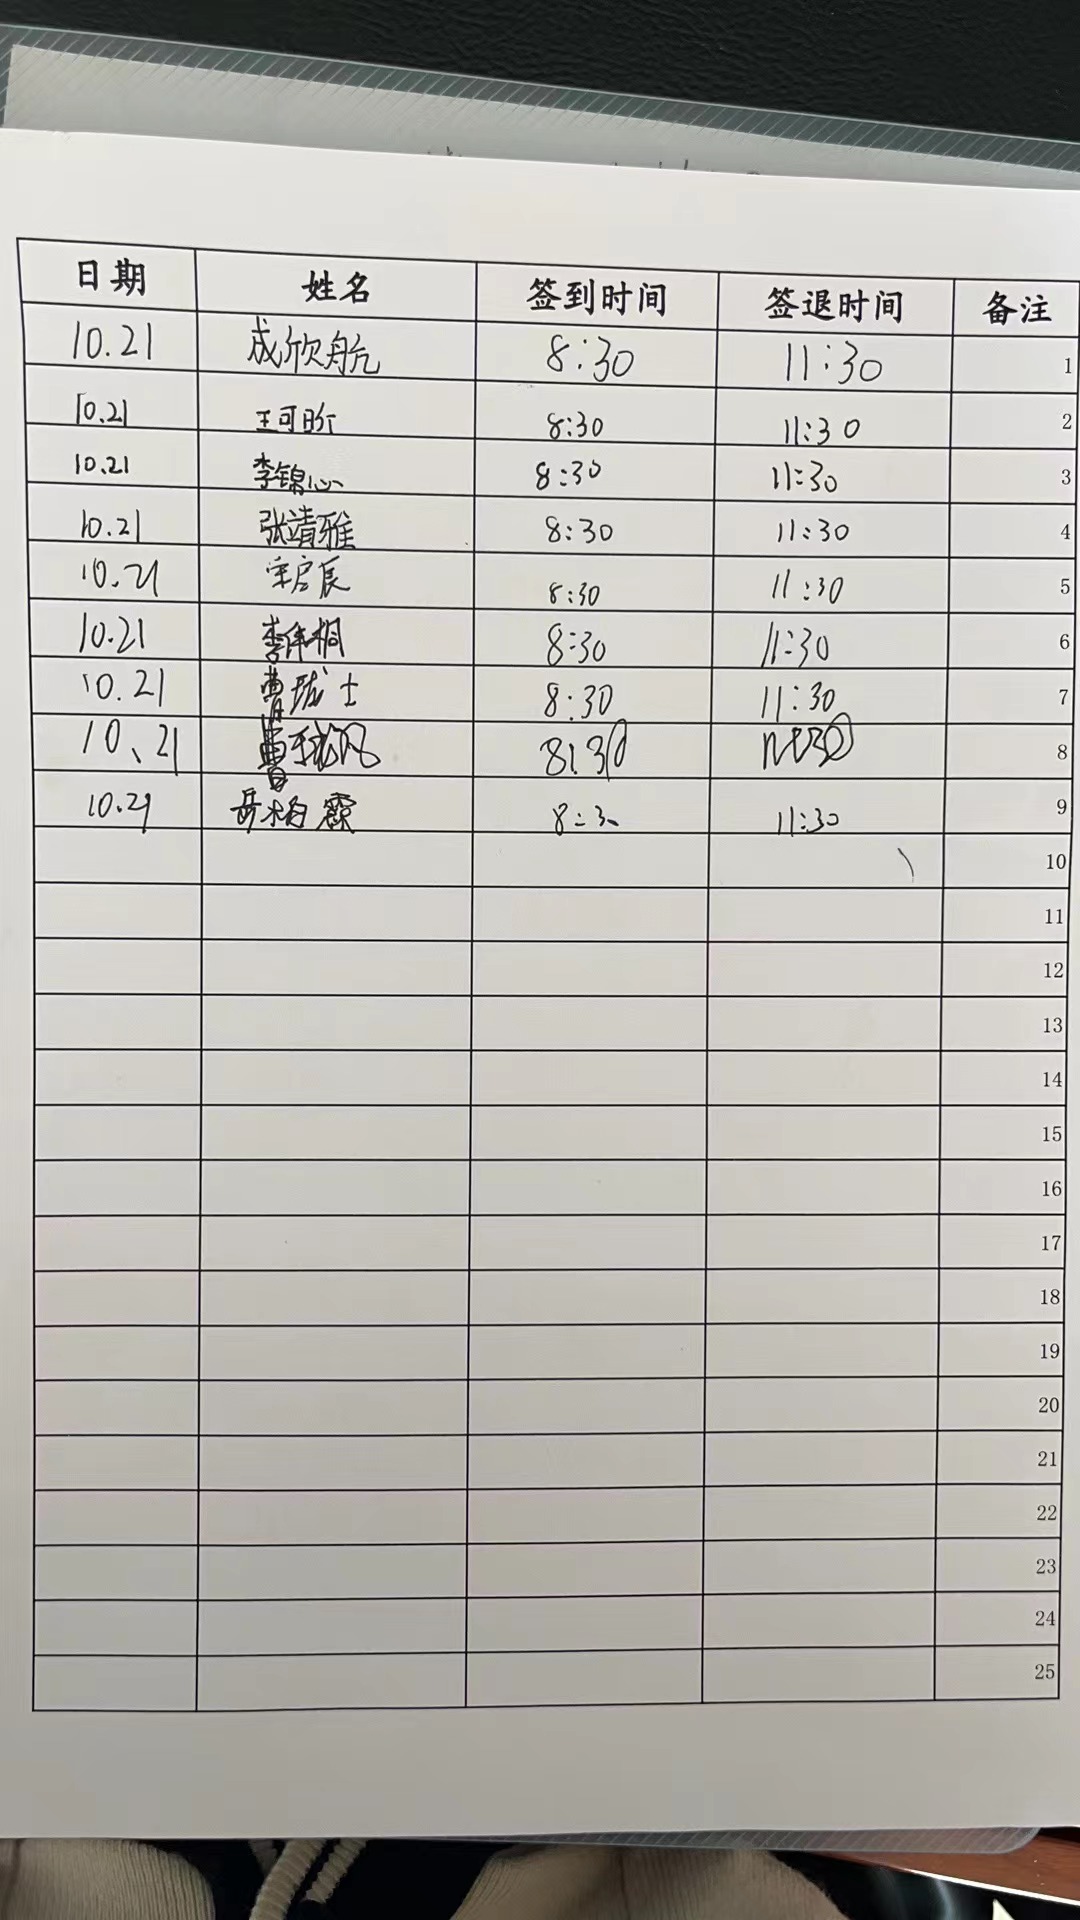 日期 姓名 签到时间 签退时间 备注
10.21 成欣航 8:30 11:30 1
10.21 王可昕 8:30 11:30 2
10.21 李锦心 8:30 11:30 3
10.21 张靖雅 8:30 11:30 4
10.21 宋启辰 8:30 11:30 5
10.21 李伟桐 8:30 11:30 6
10.21 曹珑士 8:30 11:30 7
10、21 8
10.21 8:30 11:30 9
10
11
12
13
14
15
16
17
18
19
20
21
22
23
24
25